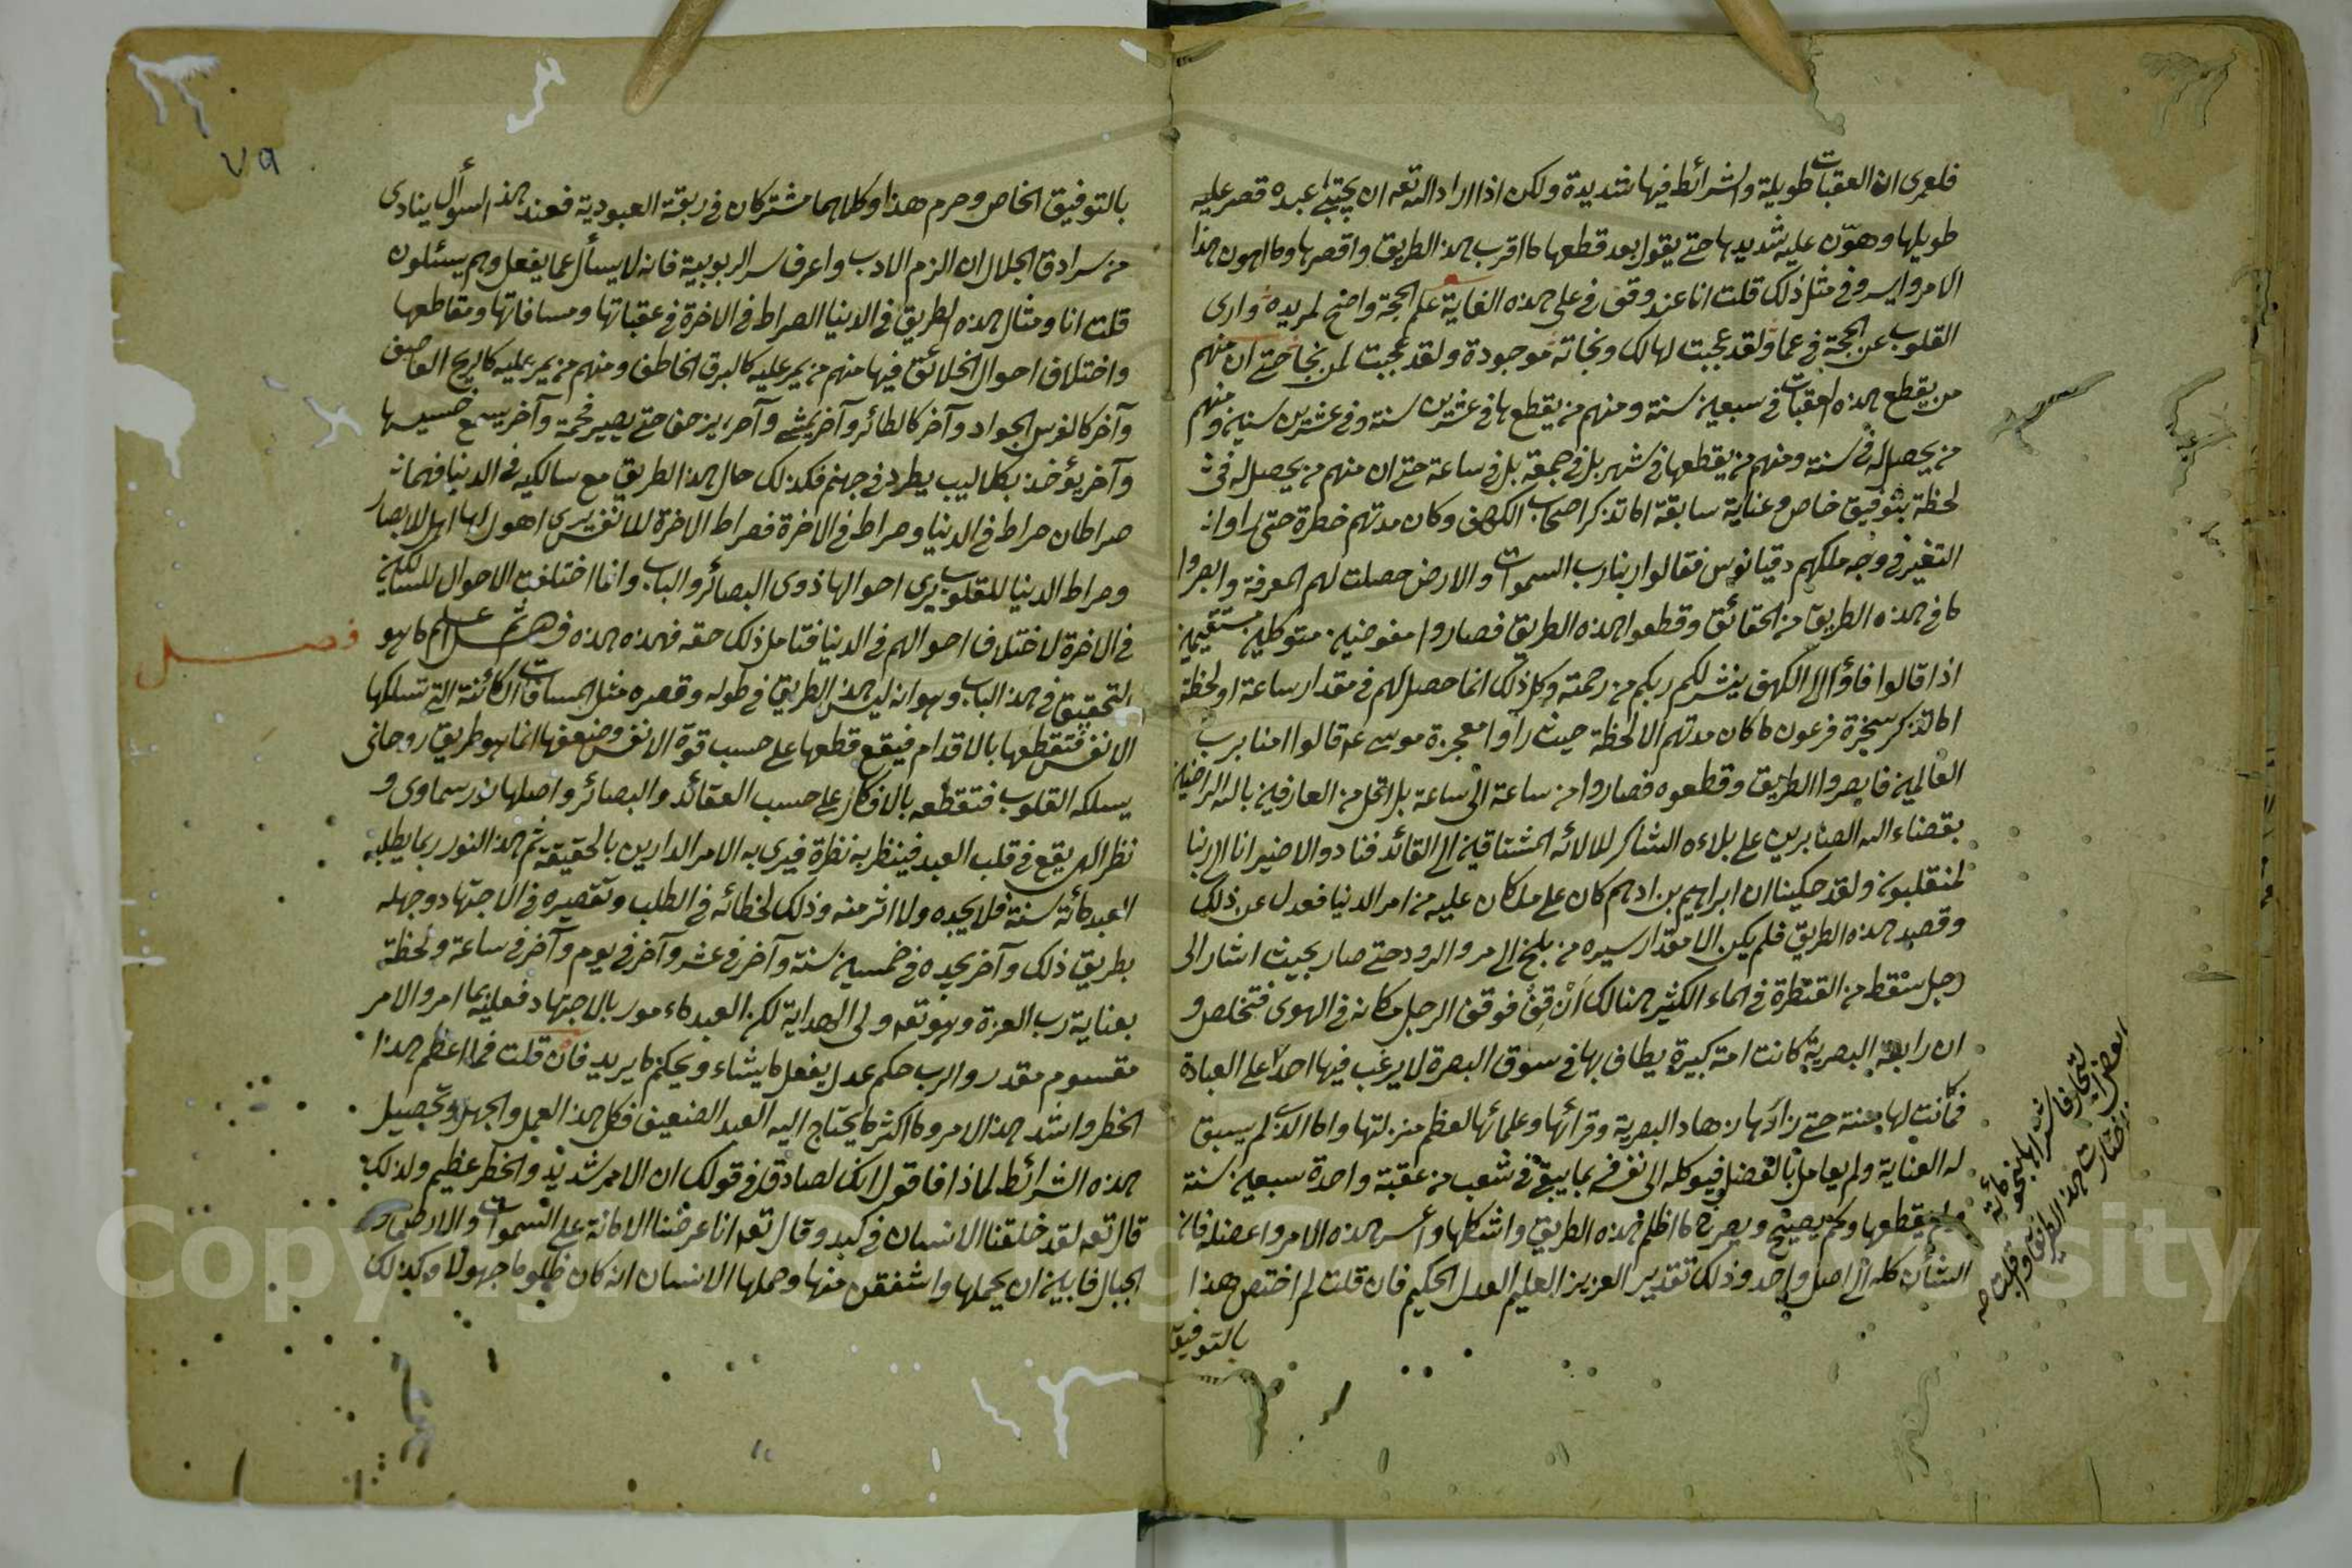 فلعمرى ان العقبات طويلة والشرائط فيها شديدة ولكن اذا اراد الله تعه ان يجتبئ عبده قصر عليه
طويلها وهوّن عليه شديدها حتے يقول بعد قطعها ما اقرب هذا الطريق واقصرها وما اهون هذا
الامر وايسر وفے مثل ذلك قلت انا عند وقفے فے على هذه الغاية علم المحجة واضح لمريده وارى
القلوب عن المحجة فے عما ولقد عجبت لهالك ونجاته موجودة ولقد عجبت لمن نجا حتے ان منهم
من يقطع هذه العقبات فے سبعين سنة ومنهم من يقطعها فے عشرين سنة وفے عشرين سنين ومنهم
من يحصل له فے سنة ومنهم من يقطعها فے شهر بل فے جمعة بل فے ساعة حتے ان منهم من يحصل له فے
لحظة بتوفيق خاص وعناية سابقة اما تذكر اصحاب الكهف وكان مدتهم خطرة حتى راوا
التغير فے وجه ملكهم دقيانوس فقالوا ربنا رب السموات والارض حصلت لهم المعرفة وابصروا
ما فے هذه الطريق من الحقائق وقطعوا هذه الطريق فصاروا مفوضين متوكلين مستقيمين
اذا قالوا فاؤا الى الكهف ينشر لكم ربكم من رحمته وكل ذلك انما حصل لهم فے مقدار ساعة او لحظة
اما تذكر سحرة فرعون ما كان مدتهم الا لحظة حيث راوا معجزة موسے عم قالوا امنا برب
العالمين فابصروا الطريق وقطعوه فصاروا من ساعة الى ساعة بل اقل من العارفين بالله الراضين
بقضاء الله الصابرين على بلاءه الشاكر للالائه المشتاقين الى القائد فنادوا لاضير انا الى ربنا
لمنقلبون ولقد حكينا ان ابراهيم بن ادهم كان على ما كان عليه من امر الدنيا فعدل عن ذلك
وقصد هذه الطريق فلم يكن الا مقدار سيره من بلخ الى مرو الرود حتے صار بحيث اشار الى
رجل سقط من القنطرة فے الماء الكثير هنالك اَنْ قِفْ فوقف الرجل مكانه فے الهوى فتخلص و
ان رابعة البصرية كانت امة كبيرة يطاف بها فے سوق البصرة لا يرغب فيها احد على العبادة
له العناية ولم يعامل بالفضل فيوكله الى نفسه بما يبقے فے شعب من عقبة واحدة سبعين سنة
ولم يقطعها وكم يصيح ويصرخ ما اظلم هذه الطريق واشكلها واعسر هذه الامر واعضله فان
الشأن كله الى اصل واحد وذلك تقدير العزيز العليم العدل الحكيم فان قلت لم اختص هذا
بالتوفيق
٧٩
بالتوفيق الخاص وحرم هذا وكلاهما مشتركان فے ربقة العبودية فعند هذا السؤال ينادى
من سرادق الجلال ان الزم الادب واعرف سر الربوبية فانه لا يسأل عما يفعل وهم يسئلون
قلت انا ومثال هذه الطريق فے الدنيا الصراط فے الاخرة فے عقباتها ومسافاتها ومقاطعها
واختلاف احوال الخلائق فيها منهم من يمر عليه كالبرق الخاطف ومنهم من يمر عليه كالريح العاصف
وآخر كالفرس الجواد وآخر كالطائر وآخر يمشے وآخر يزحف حتے يصير فحمة وآخر يسمع حسيسها
وآخر يؤخذ بكلاليب يطرد فے جهنم فكذلك حال هذا الطريق مع سالكيه فے الدنيا فهما
صراطان صراط فے الدنيا وصراط فے الاخرة فصراط الاخرة للانفس يرى اهوالها اهل الابصار
وصراط الدنيا للقلوب يرى احوالها ذوى البصائر والباب وانما اختلفت الاحوال للسالكين
فے الاخرة لاختلاف احوالهم فے الدنيا فتامل ذلك حقه فهذه هذه فصل ثم اعلم ما هو
فصل
التحقيق فے هذا الباب وهو انه ليس هذا الطريق فے طوله وقصره مثل المسافات الكائنة التے تسلكها
الانفس فتقطعها بالاقدام فيقع قطعها على حسب قوة الانفس وضعفها انما هو طريق روحانى
يسلكه القلوب فتقطعه بالافكار على حسب العقائد والبصائر واصلها نور سماوى و
نظر الهى يقع فے قلب العبد فينظر به نظرة فيرى به الامر الدارين بالحقيقة ثم هذا النور ربما يطلبه
العبد مائة سنة فلا يجده ولا اثر منه وذلك لخطائه فے الطلب وتقصيره فے الاجتهاد وجهله
بطريق ذلك وآخر يجده فے خمسين سنة وآخر فے عشر وآخر فے يوم وآخر فے ساعة ولحظة
بعناية رب العزة وهو تعه ولى الهداية لكن العبد مامور بالاجتهاد فعليه بما امر والامر
مقسوم مقدر والرب حكم عدل يفعل ما يشاء ويحكم ما يريد فان قلت فما اعظم هذا
الخطر واشد هذا الامر وما اكثر ما يحتاج اليه العبد الضعيف فكل هذا العمل والجهد وتحصيل
هذه الشرائط لماذا فاقول انك لصادق فے قولك ان الامر شديد والخطر عظيم ولذلك
قال تعه لقد خلقنا الانسان فے كبد وقال تعه انا عرضنا الامانة على السموات والارض و
الجبال فابين ان يحملنها واشفقن منها وحملها الانسان انه كان ظلوما جهولا وكذلك